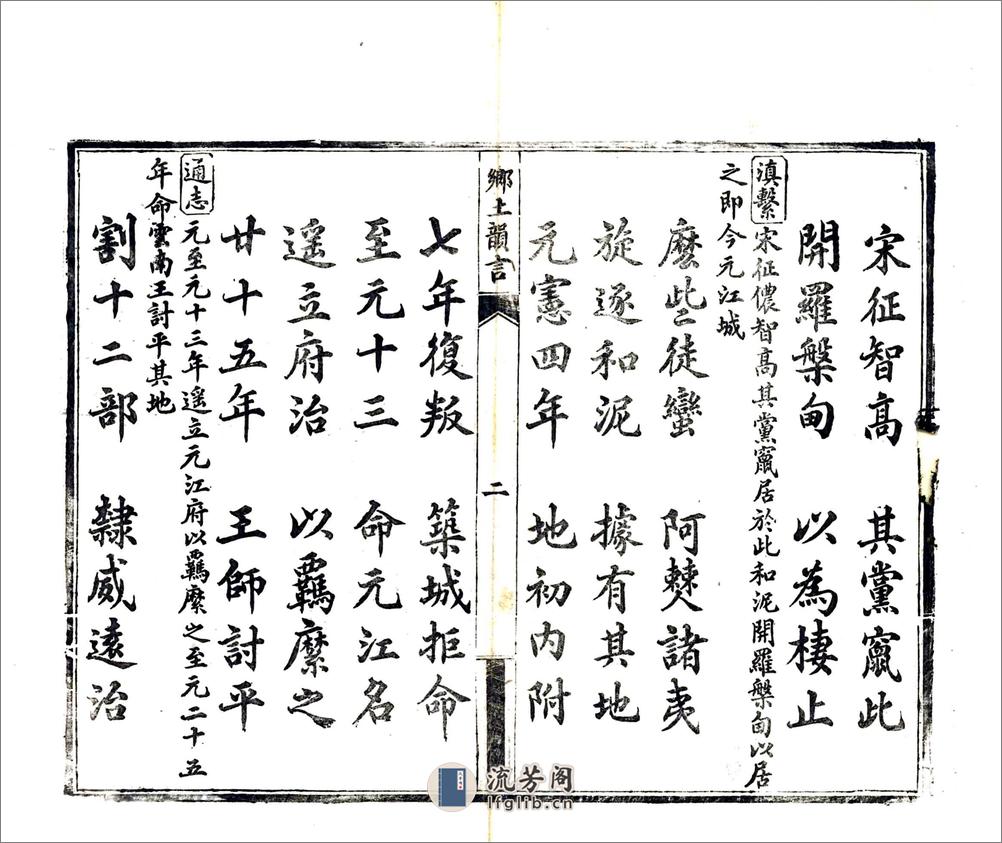 宋征智高　其黨竄此
開羅槃甸　以為棲止
滇繫 宋征儂智高其黨竄居於此和泥開羅槃甸以居
之即今元江城
麽些二徒蠻　阿僰諸夷
旋逐和泥　據有其地
元憲四年　地初内附
鄉土韻言
二
七年復叛　築城拒命
至元十三　命元江名
遥立府治　以羈縻之
廿十五年　王師討平
通志 元至元十三年遥立元江府以羈縻之至元二十五
年命雲南王討平其地
割十二部　隸威遠治
流芳阁
lfglib.cn